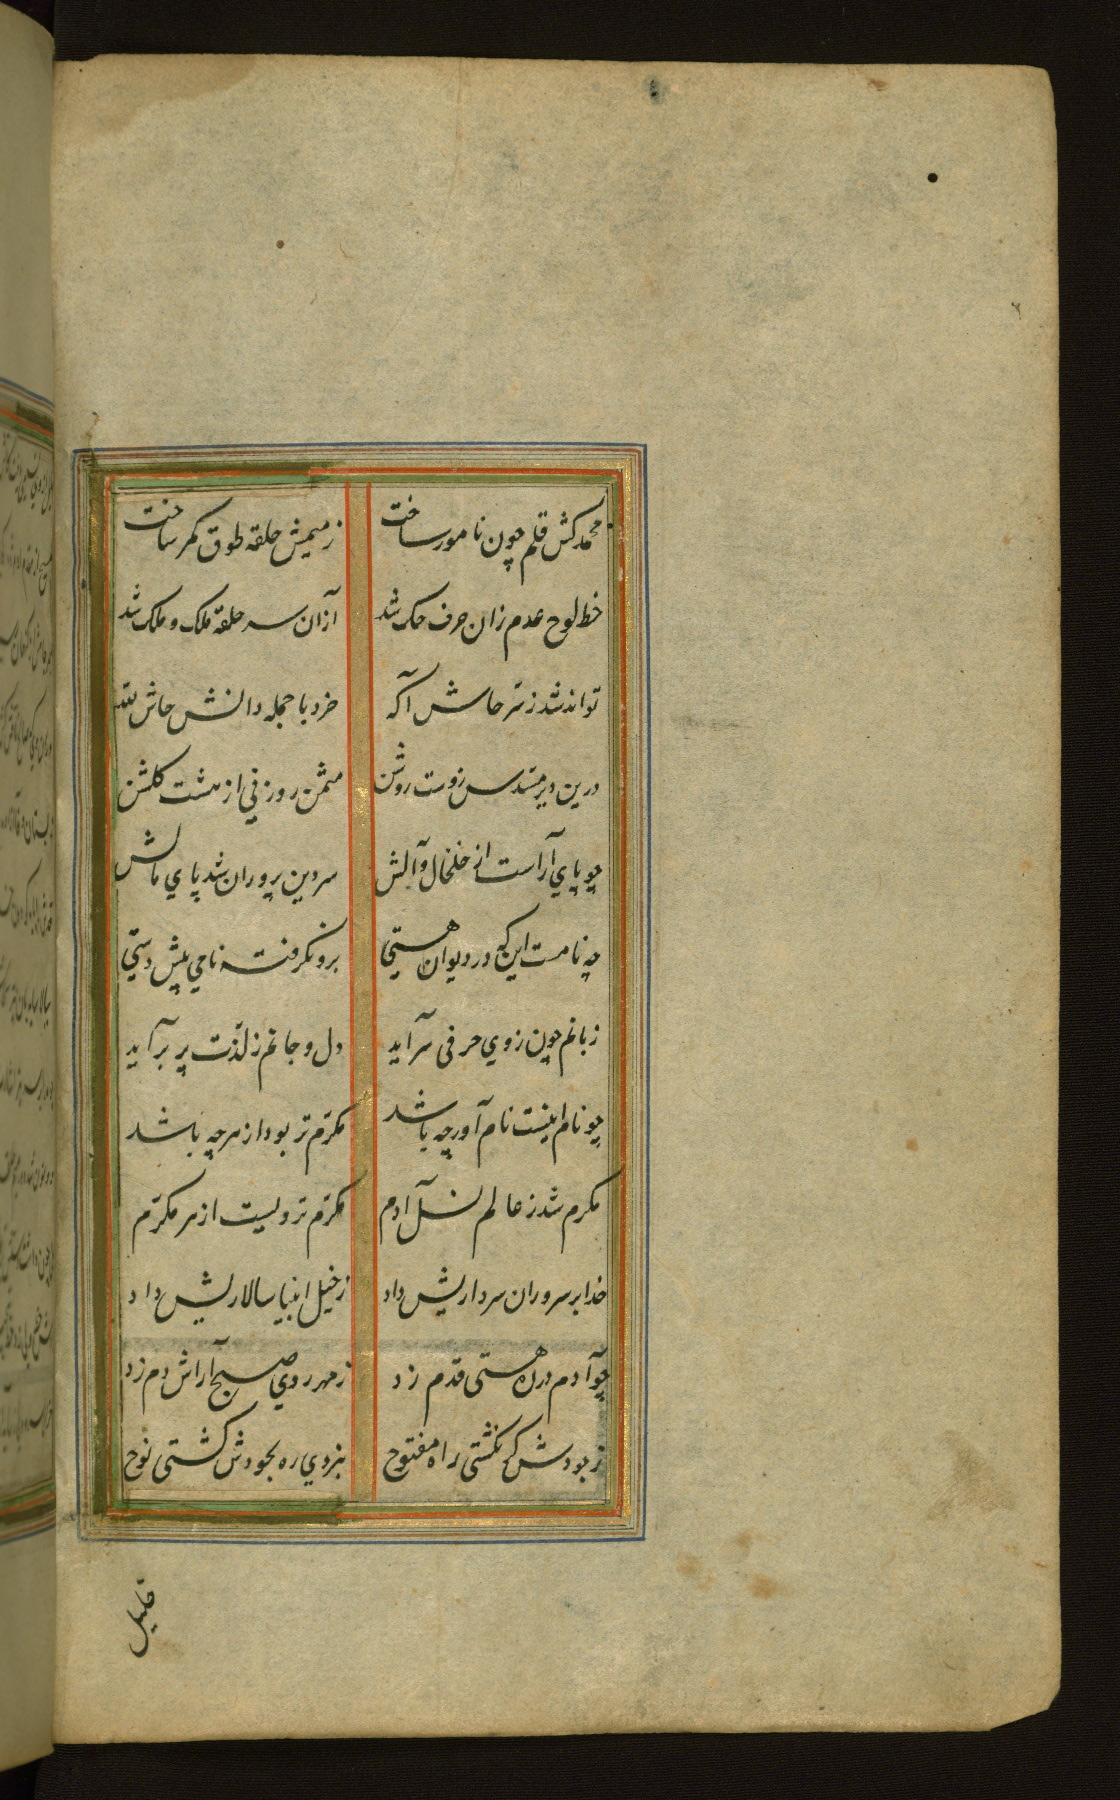 محمد کش قلم چون نامور ساخت
ز میمش حلقه طوق کمر ساخت
خط لوح عدم زان حرف حک شد
از آن سر حلقه ملک و ملک شد
تواند شد ز سر حاش آگه
خرد با جمله دانش حاش لله
درین دیر مسدس زوست روشن
مثمن روزنی از هشت گلشن
چو پای آراست از خلخال و آلش
سر دین پروران شد پای مالش
چه نامست این که در دیوان هستی
برو نگرفته نامی پیش دستی
زبانم چون زوی حرفی سرآید
دل و جانم ز لذت پر برآید
چو نام اینست نام آور چه باشد
مکرم تر بود از هر چه باشد
مکرم شد ز عالم نسل آدم
مکرم تر ویست از هر مکرم
خدا بر سروران سرداریش داد
ز خیل انبیا سالاریش داد
چو آدم در ره هستی قدم زد
ز مهر روی صبح آراش دم زد
ز جودش گر نگشتی راه مفتوح
نبردی ره بجودش کشتی نوح
خلیل